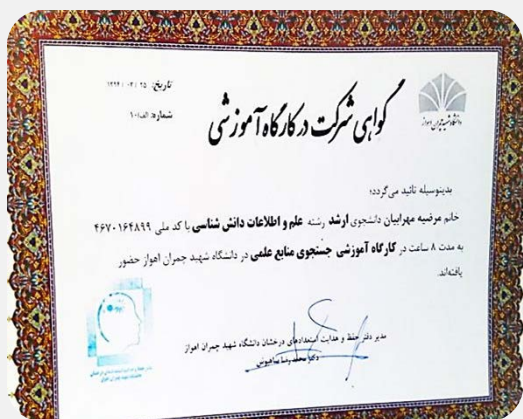 تاریخ: ۲۵ / ۰۳ / ۱۳۹۴
شماره: الف/۱۰
دانشگاه شهید چمران اهواز
گواهی شرکت در کارگاه آموزشی
بدینوسیله تائید می‌گردد:
خانم مرضیه مهرابیان دانشجوی ارشد رشته علم و اطلاعات دانش شناسی با کد ملی ۴۶۷۰۱۶۴۸۹۹
به مدت ۸ ساعت در کارگاه آموزشی جستجوی منابع علمی در دانشگاه شهید چمران اهواز حضور
یافته‌اند.
مدیر دفتر حفظ و هدایت استعدادهای درخشان دانشگاه شهید چمران اهواز
دکتر محمدرضا